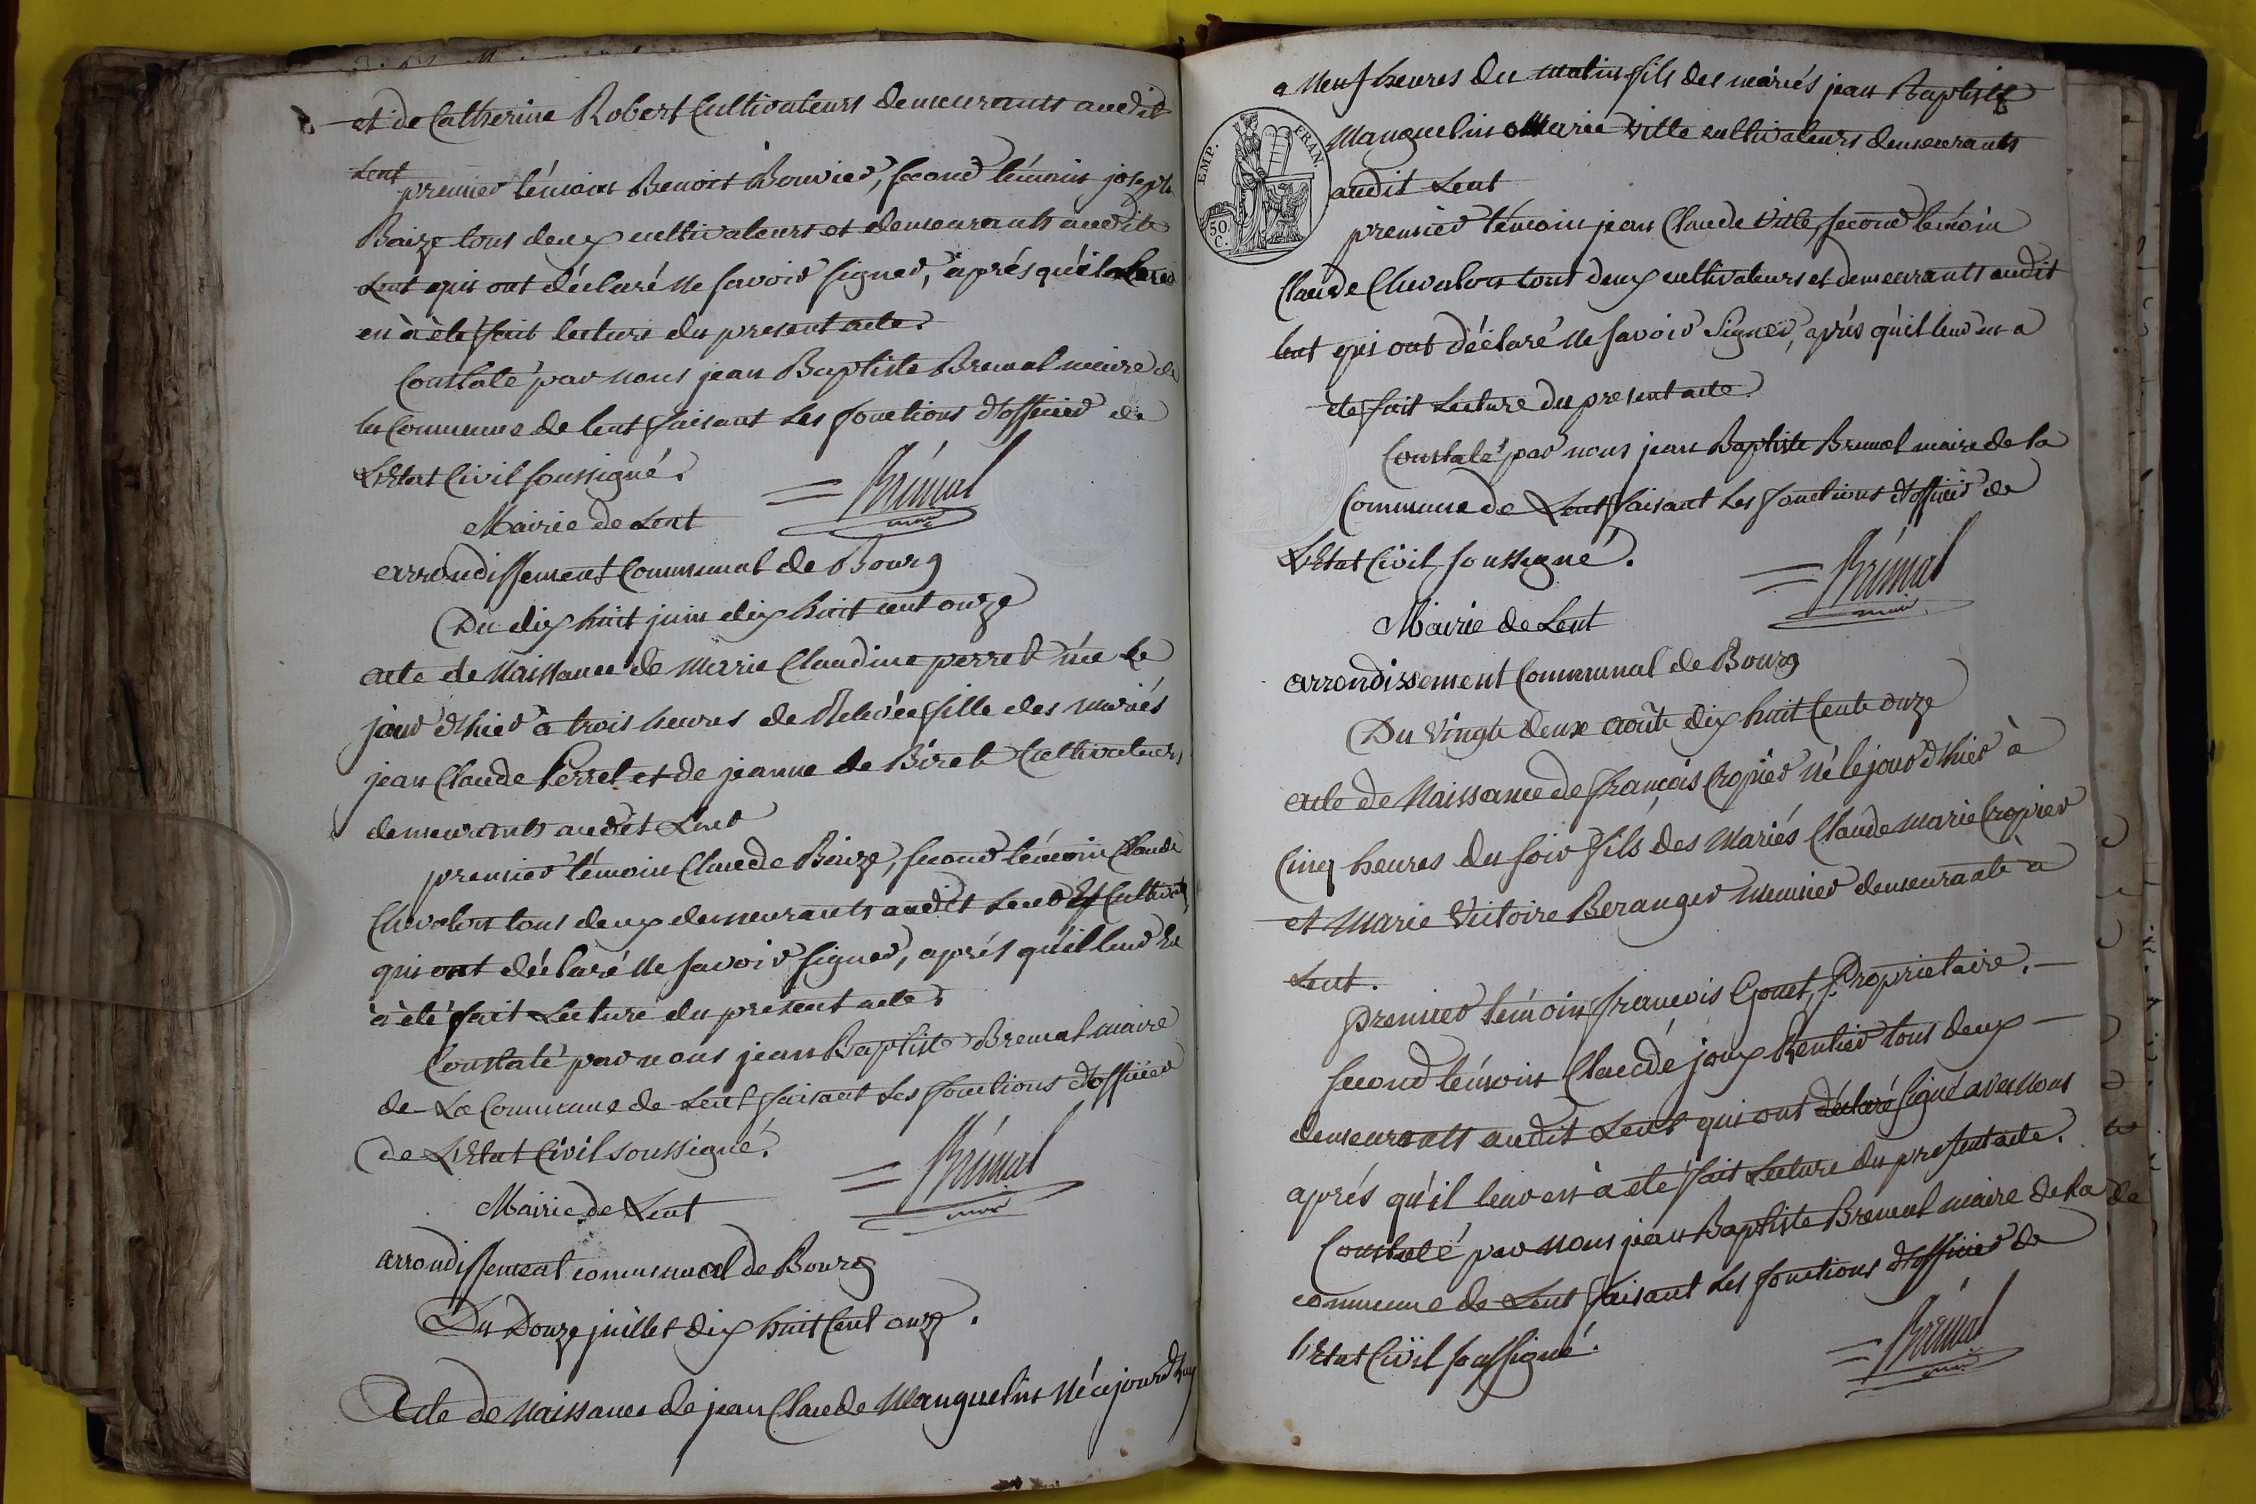 et de Catherine Robert Cultivateurs demeurants audit
Lent
premier témoin Benoit Bouvier, second témoin joseph
Baize tous deux cultivateurs et demeurants audit
Lent qui ont déclaré ne savoir signer, après qu'il leur
en à été fait lecture du present acte.
Constaté par nous jean Baptiste Bremal maire de
la Commune de lent faisant les fonctions d'officier de
L'Etat Civil soussigné.
= Brémal
maire
Mairie de Lent
arrondissement Communal de Bourg
Du dix huit juin dix huit cent onze
acte de Naissance de Marie Claudine perret née le
jour d'hier à trois heures de Relevée fille des mariés
jean Claude Perret et de jeanne de Biret Cultivateurs
demeurants audit Lent
premier témoin Claude Baize, second témoin Claude
Chevalon tous deux demeurants audit Lent Et Cultivat
qui ont déclaré ne savoir signer, après qu'il leur En
à été fait Lecture du present acte.
Constaté par nous jean Baptiste Bremal maire
de La Commune de Lent faisant les fonctions d'officier
de L'Etat Civil soussigné.
= Brémal
maire
Mairie de Lent
arrondissement communal de Bourg
Du Douze juillet dix huit Cent onze.
Acte de Naissance de jean Claude Manguelin Né cejourd'huy
a Neuf heures du matin fils des mariés jean Baptiste
EMP. FRAN.
50 C.
Manguelin Marie Ville cultivateurs demeurants
audit Lent
premier témoin jean Claude Ville, second témoin
Claude Chevalon tous deux cultivateurs et demeurants audit
lent qui ont déclaré ne savoir Signer, après qu'il leur en a
été fait Lecture du present acte
Constaté par nous jean Baptiste Bremal maire de la
Commune de Lent faisant les fonctions d'officier de
L'Etat Civil soussigné.
= Brémal
maire
Mairie de Lent
arrondissement Communal de Bourg
Du Vingt deux août dix huit Cent onze
acte de Naissance de françois Cropier né le jour d'hier à
Cinq heures du soir fils des Mariés Claude marie Cropier
et Marie Victoire Beranger Meunier demeurants à
Lent.
Premier témoin francois Gouet, Proprietaire.
second témoin Claude joux Rentier tous deux
demeurants audit Lent qui ont déclaré signé avec nous
aprés qu'il leur en à été fait Lecture du present acte.
Constaté par nous jean Baptiste Bremal maire de la
commune de Lent faisant les fonctions d'officier de
l'Etat Civil soussigné.
= Brémal
maire